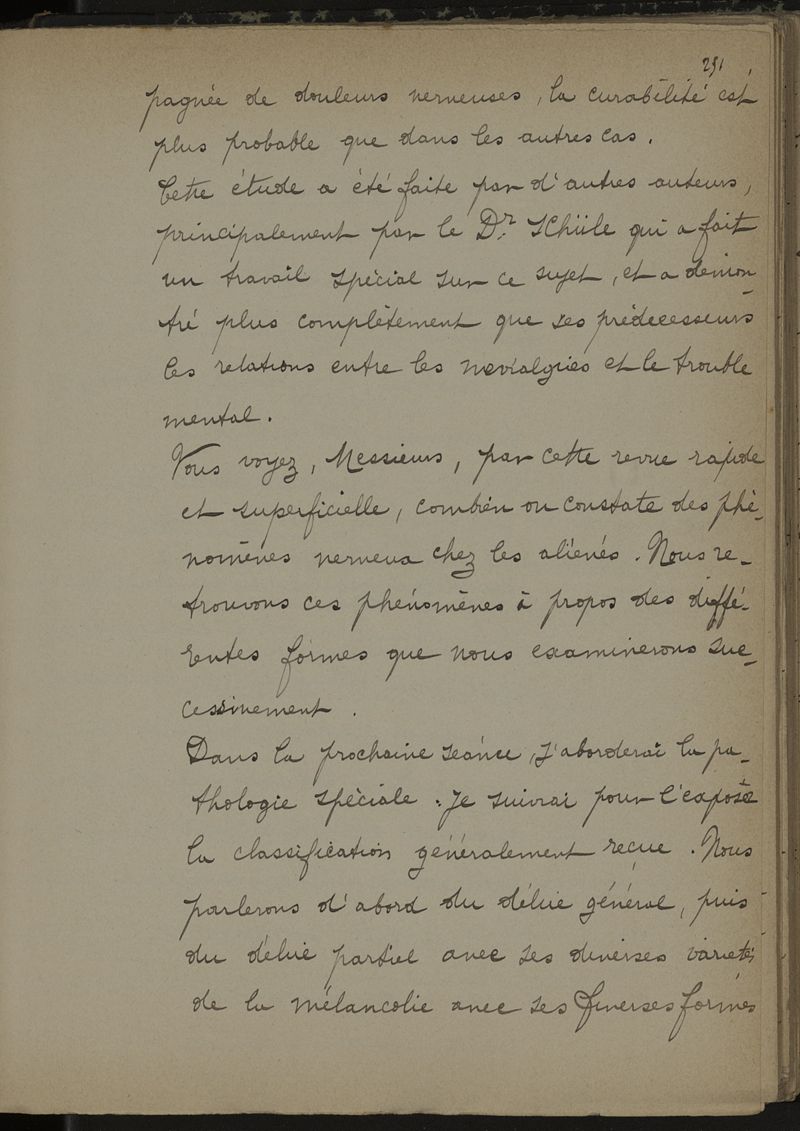 251
pagnée de douleurs nerveuses, la curabilité est
plus probable que dans les autres cas.
Cette étude a été faite par d'autres auteurs,
principalement par le Dr. Schüle qui a fait
un travail spécial sur ce sujet, et a démon-
tré plus complètement que ses prédecesseurs
les relations entre les nevralgies et le trouble
mental.
Vous voyez, Messieurs, par cette revue rapide
et superficielle, combien on constate des phé-
nomènes nerveux chez les aliénés. Nous re-
trouvons ces phénomènes à propos des diffé-
rentes formes que nous examinerons suc-
cessivement.
Dans la prochaine séance, j'aborderai la pa-
thologie spéciale. Je suivrai pour l'exposé
la classification généralement reçue. Nous
parlerons d'abord du délire général, puis
du délire partiel avec ses diverses varietés
de la mélancolie avec ses diverses formes